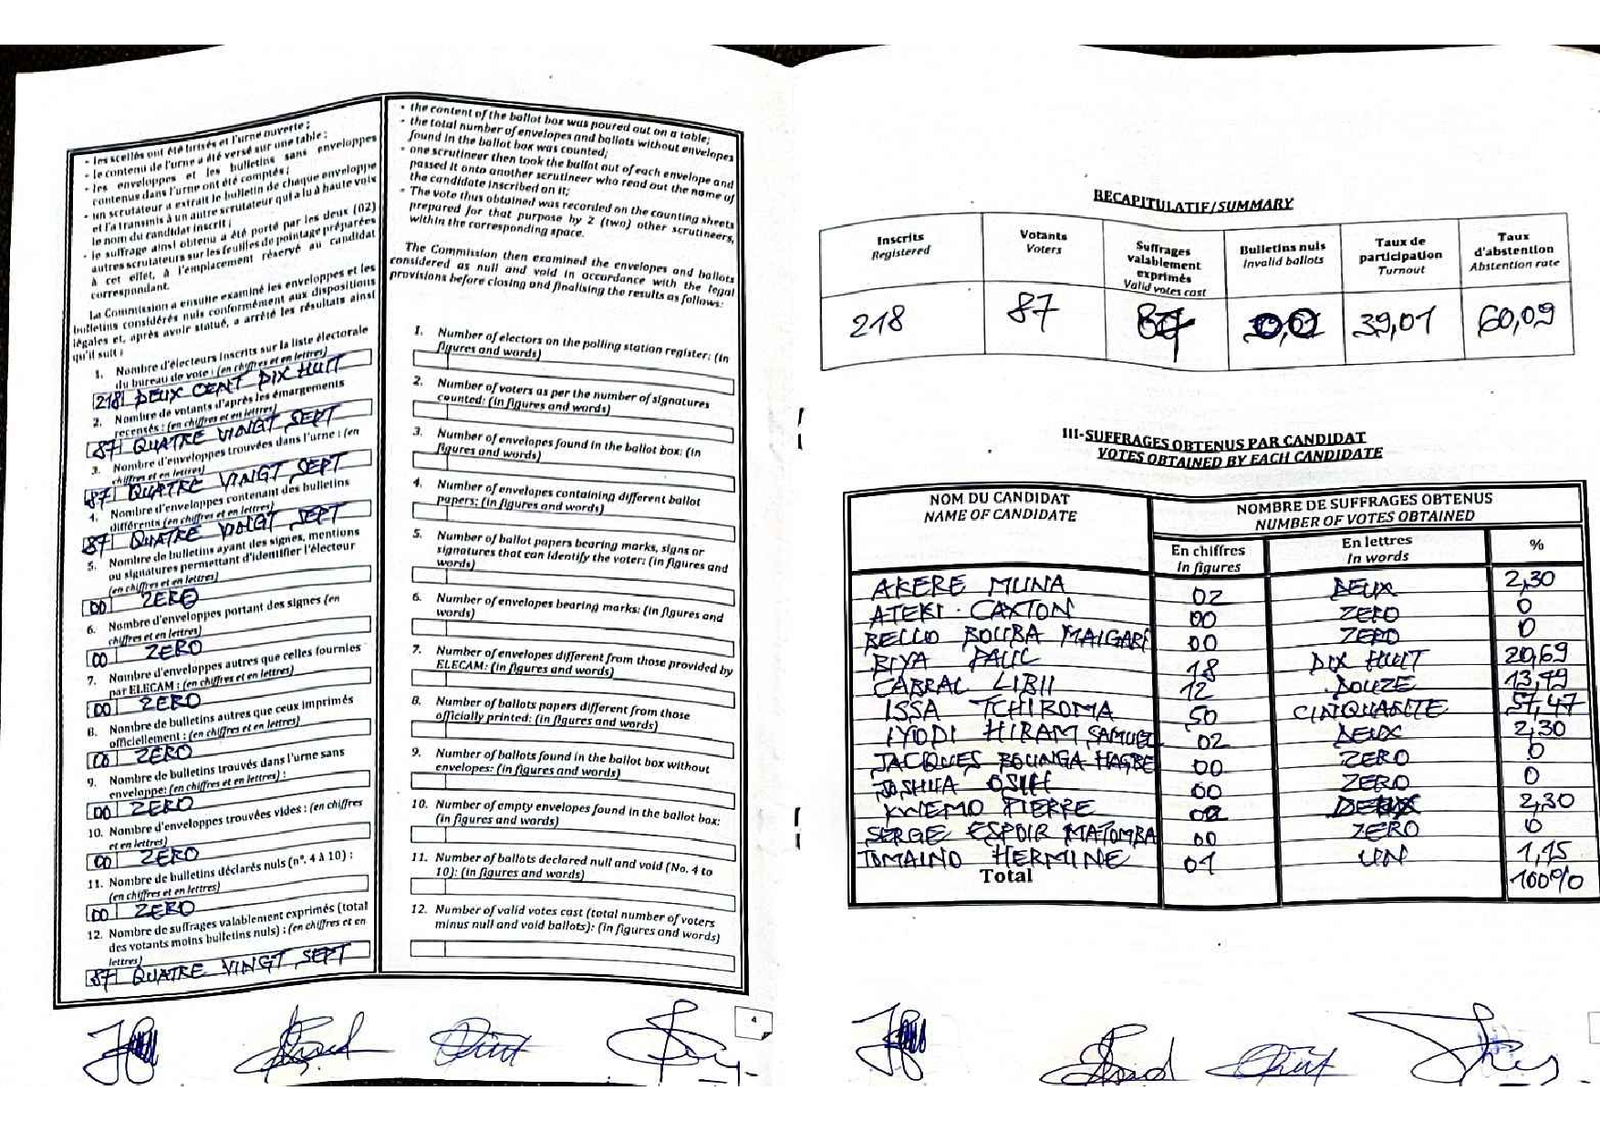 • les scellés ont été brisés et l'urne ouverte ;
• le contenu de l'urne a été versé sur une table ;
• les enveloppes et les bulletins sans enveloppes
contenus dans l'urne ont été comptés ;
• un scrutateur a extrait le bulletin de chaque enveloppe
et l'a transmis à un autre scrutateur qui l'a lu à haute voix
le nom du candidat inscrit ;
• le suffrage ainsi obtenu a été porté par les deux (02)
autres scrutateurs sur les feuilles de pointage préparées
à cet effet, à l'emplacement réservé au candidat
correspondant.
La Commission a ensuite examiné les enveloppes et les
bulletins considérés nuls conformément aux dispositions
légales et, après avoir statué, a arrêté les résultats ainsi
qu'il suit :
1. Nombre d'électeurs inscrits sur la liste électorale
du bureau de vote : (en chiffres et en lettres)
218 DEUX CENT DIX HUIT
2. Nombre de votants d'après les émargements
recensés : (en chiffres et en lettres)
87 QUATRE VINGT SEPT
3. Nombre d'enveloppes trouvées dans l'urne : (en
chiffres et en lettres)
87 QUATRE VINGT SEPT
4. Nombre d'enveloppes contenant des bulletins
différents (en chiffres et en lettres)
87 QUATRE VINGT SEPT
5. Nombre de bulletins ayant des signes, mentions
ou signatures permettant d'identifier l'électeur
(en chiffres et en lettres)
00 ZERO
6. Nombre d'enveloppes portant des signes (en
chiffres et en lettres)
00 ZERO
7. Nombre d'enveloppes autres que celles fournies
par ELECAM : (en chiffres et en lettres)
00 ZERO
8. Nombre de bulletins autres que ceux imprimés
officiellement : (en chiffres et en lettres)
00 ZERO
9. Nombre de bulletins trouvés dans l'urne sans
enveloppe: (en chiffres et en lettres) :
00 ZERO
10. Nombre d'enveloppes trouvées vides : (en chiffres
et en lettres)
00 ZERO
11. Nombre de bulletins déclarés nuls (n°. 4 à 10) :
(en chiffres et en lettres)
00 ZERO
12. Nombre de suffrages valablement exprimés (total
des votants moins bulletins nuls) : (en chiffres et en
lettres)
87 QUATRE VINGT SEPT
• the content of the ballot box was poured out on a table;
• the total number of envelopes and ballots without envelopes
found in the ballot box was counted;
• one scrutineer then took the ballot out of each envelope and
passed it onto another scrutineer who read out the name of
the candidate inscribed on it;
• The vote thus obtained was recorded on the counting sheets
prepared for that purpose by 2 (two) other scrutineers,
within the corresponding space.
The Commission then examined the envelopes and ballots
considered as null and void in accordance with the legal
provisions before closing and finalising the results as follows:
1. Number of electors on the polling station register: (in
figures and words)
2. Number of voters as per the number of signatures
counted: (in figures and words)
3. Number of envelopes found in the ballot box: (in
figures and words)
4. Number of envelopes containing different ballot
papers: (in figures and words)
5. Number of ballot papers bearing marks, signs or
signatures that can identify the voter: (in figures and
words)
6. Number of envelopes bearing marks: (in figures and
words)
7. Number of envelopes different from those provided by
ELECAM: (in figures and words)
8. Number of ballots papers different from those
officially printed: (in figures and words)
9. Number of ballots found in the ballot box without
envelopes: (in figures and words)
10. Number of empty envelopes found in the ballot box:
(in figures and words)
11. Number of ballots declared null and void (No. 4 to
10): (in figures and words)
12. Number of valid votes cast (total number of voters
minus null and void ballots): (in figures and words)
4
RECAPITULATIF/SUMMARY
Inscrits Registered
Votants Voters
Suffrages valablement exprimés Valid votes cast
Bulletins nuls Invalid ballots
Taux de participation Turnout
Taux d'abstention Abstention rate
218 87 87 39,01 60,09
III-SUFFRAGES OBTENUS PAR CANDIDAT
VOTES OBTAINED BY EACH CANDIDATE
NOM DU CANDIDAT
NAME OF CANDIDATE
NOMBRE DE SUFFRAGES OBTENUS
NUMBER OF VOTES OBTAINED
En chiffres In figures
En lettres In words
%
AKERE MUNA 02 DEUX 2,30
ATEKI CAXTON 00 ZERO 0
BELLO BOUBA MAIGARI 00 ZERO 0
BIYA PAUL 18 DIX HUIT 20,69
CABRAL LIBII 12 DOUZE 13,79
ISSA TCHIROMA 50 CINQUANTE 57,47
IYODI HIRAM SAMUEL 02 DEUX 2,30
JACQUES BOUNGA HAGBE 00 ZERO 0
JOSHUA OSIH 00 ZERO 0
KWEMO PIERRE 02 DEUX 2,30
SERGE ESPOIR MATOMBA 00 ZERO 0
TOMAINO HERMINE 01 UN 1,15
Total 100%